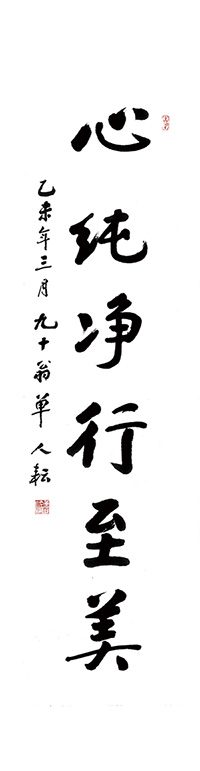 心纯净行至美
乙未年三月九十翁单人耘